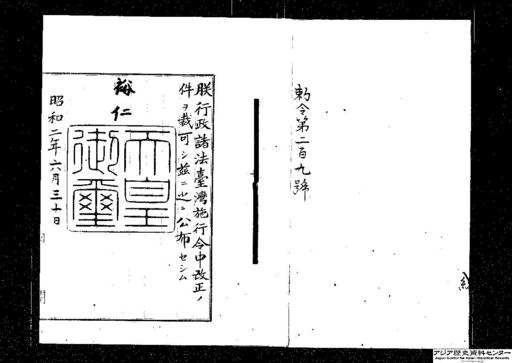 勅令第二百九號
朕行政諸法臺灣施行令中改正ノ
件ヲ裁可シ茲ニ之ヲ公布セシム
裕仁
天皇
御璽
昭和二年六月三十日
アジア歴史資料センター
Japan Center for Asian Historical Records